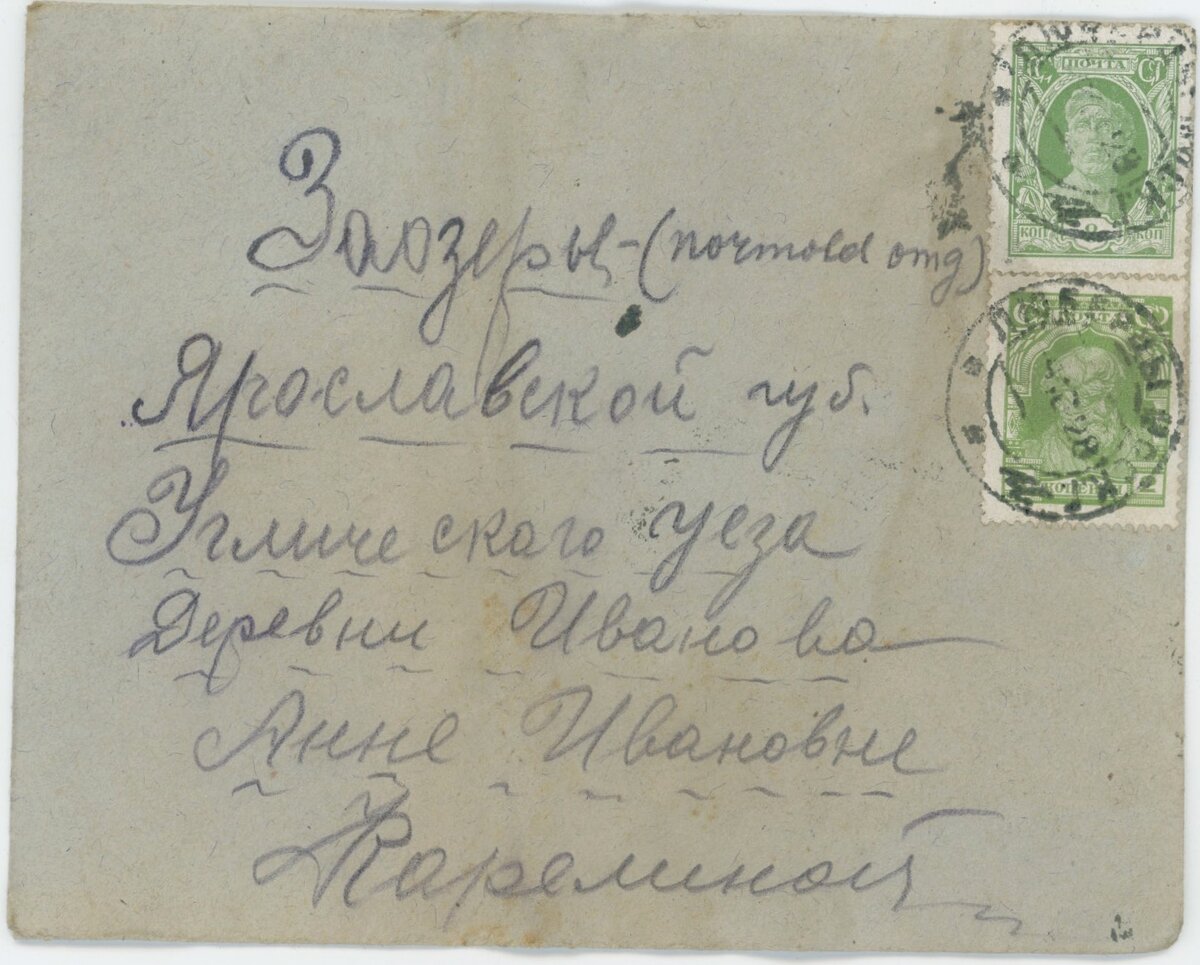 Заозеры-(почтовое отд)
Ярославской губ.
Угличского уеза
Деревни Иванова
Анне Ивановне
Карелиной
ПОЧТА
КОП 8 КОП
ПОЧТА